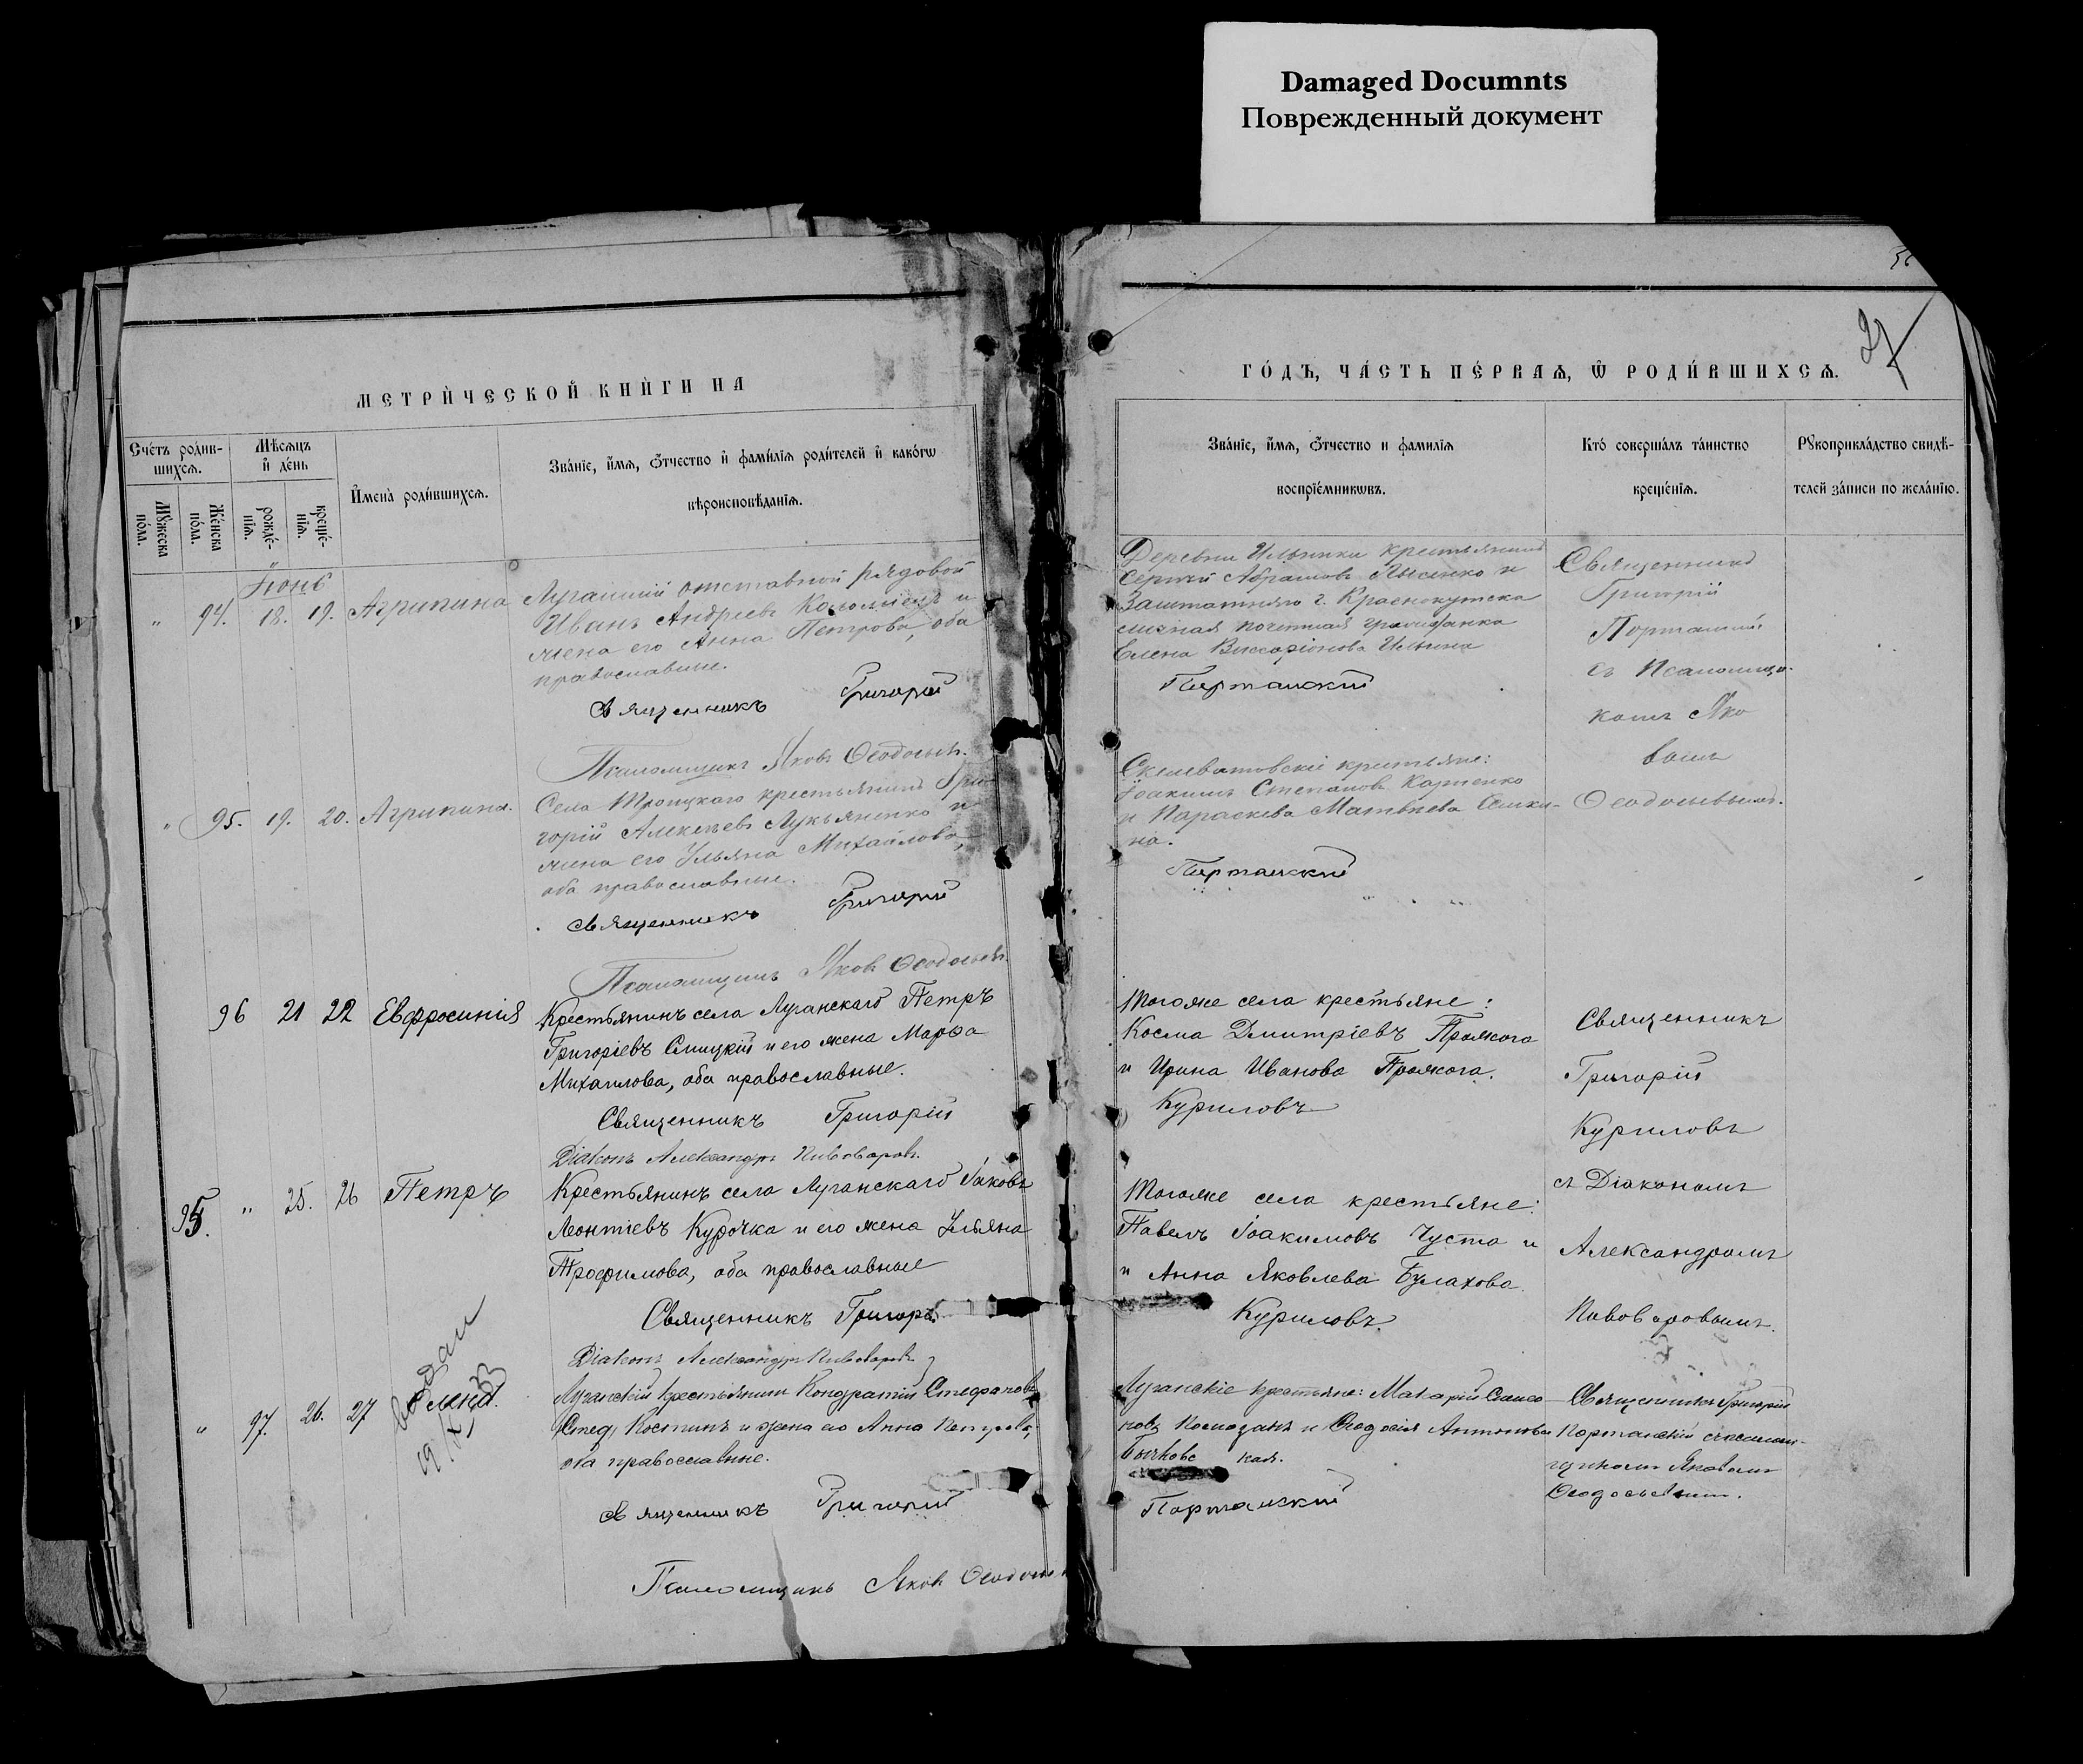 Damaged Documnts
Поврежденный документ
МЕТРИ́ЧЕСКОЙ КНИ́ГИ НА
Сче́тъ роди́в-
шихсѧ.
Мꙋ́жеска
по́ла.
Же́нска
по́ла.
Мѣ́сѧцъ
и҆ де́нь
рожде́-
нїѧ.
креще́-
нїѧ.
И҆мена̀ роди́вшихсѧ.
Зва́нїе, и҆́мѧ, ѻ҆́тчество и҆ фами́лїѧ роди́телей и҆ како́гѡ
вѣроисповѣ́данїѧ.
Іюнь
" 94. 18. 19. Агрипина
Луганскій отставной рядовой
Иванъ Андреевъ Коломіецъ и
жена его Анна Петрова, оба
православные.
Священникъ Григорій
Псаломщикъ Яковъ Ѳеодосьевъ.
" 95. 19. 20. Агрипина.
Села Троицкаго крестьянинъ Гри-
горій Алексѣевъ Лукьяненко и
жена его Ульяна Михайлова,
оба православные.
Священникъ Григорій
Псаломщикъ Яковъ Ѳеодосьевъ.
96 21 22 Евфросинія
Крестьянинъ села Луганскаго Петръ
Григоріевъ Слицкій и его жена Марфа
Михаилова, оба православные.
Священникъ Григорій
Діаконъ Александръ Пивоваровъ.
95. " 25. 26 Петръ
Крестьянинъ села Луганскаго Іаковъ
Леонтіевъ Курочка и его жена Ульяна
Трофимова, оба православные
Священникъ Григорі
Діаконъ Александръ Пивоваровъ
" 97. 26. 27 Олена.
Луганскій крестьянинъ Кондратій Стефановъ
Костинъ и жена его Анна Петрова,
оба православные.
Священникъ Григорій
Псаломщикъ Яковъ
27
ГО́ДЪ, ЧА́СТЬ ПЕ́РВАѦ, Ѽ РОДИ́ВШИХСѦ.
Зва́нїе, и҆́мѧ, ѻ҆́тчество и фами́лїѧ
воспрїе́мникѡвъ.
Кто̀ соверша́лъ та́инство
креще́нїѧ.
Рꙋкоприкла́дство свидѣ́-
телей за́писи по жела́нїю.
Деревни Ильинки крестьянинъ
Сергій Абрамовъ Лысенко и
Заштатнаго г. Краснокутска
личная почетная гражданка
Елена Виссаріонова Ильина
Портанскій
Священникъ
Григорій
Портанскій
съ Псаломщи-
комъ Яко
вомъ
Ѳеодосьевымъ.
Скелеватовскіе крестьяне:
Іоакимъ Степановъ Карпенко
и Параскева Матвѣева Сліки-
на.
Портанскій
Тогоже села крестьяне:
Косма Димитріевъ Пряжога
и Ирина Иванова Пряжога.
Куриловъ
Священникъ
Григорій
Куриловъ
съ Діакономъ
Александромъ
Пивоваровымъ.
Тогоже села крестьяне:
Павелъ Іоакимовъ Чуста и
и Анна Яковлева Булахова.
Куриловъ.
Луганскіе крестьяне: Макарій Самсо-
новъ и Ѳеодосія Антонова
Портанскій
Священникъ Григорій
Портанскій съ псалом-
щикомъ Яковомъ
Ѳеодосьевымъ.